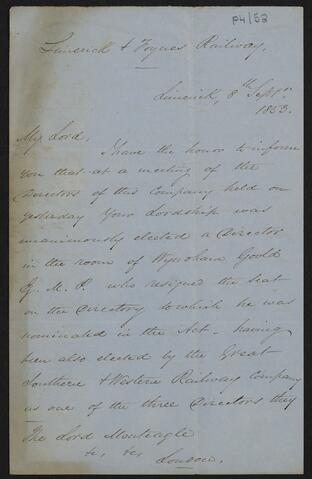 P4/52
Limerick & Foynes Railway,
Limerick, 8th Septr.
1853.
My Lord,
I have the honor to inform
you that at a meeting of the
Directors of this Company held on
yesterday Your Lordship was
unanimously elected a Director
in the room of Wyndham Goold
Esq. M.P. who resigned the seat
on the Directory to which he was
nominated in the Act - having
been also elected by the Great
Southern & Western Railway Company
as one of the three Directors they
The Lord Monteagle
&c, &c,
London.